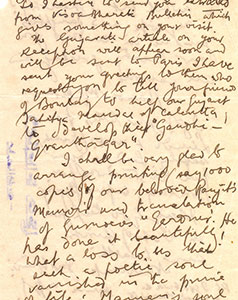 to send you
from Visva Bharati Bulletin which
gives something on your visit
The Gujarati article on your
Reception will appear soon and
will be sent to Paris. I have
sent your greetings to them who
request you to tell your friends
of Bombay to help our Gujarati
of Calcutta
to develop their "Gandhi-
Granthagar".
I shall be very glad to
arrange printing say 1000
copies of our beloved
Memoir and translation
of Gurudev's He
has done it beautifully!
What a loss to us that
such a poetic soul
vanished in the prime
of life